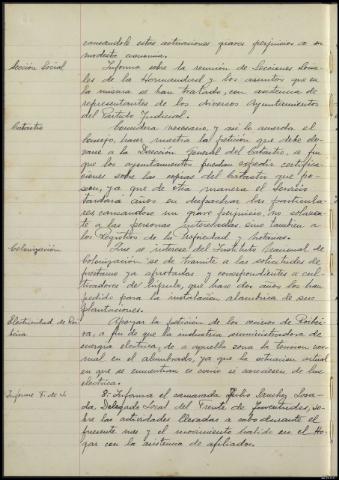 causandole estas actuaciones graves perjuicios a su
modesta economia.
Sección Social
Informa sobre la reunion de Secciones Socia-
les de la Hermandad y los asuntos que en
la misma se han tratado, con asistencia de
representantes de los diversos Ayuntamientos
del Partido Judicial.
Catastro
Considera necesario, y asi lo acuerda el
Consejo, hacer nuestra la petición que debe de
a la Dirección General del Catastro, a fin
que los ayuntamientos puedan expedir certifica-
ciones sobre las copias del Catastro que po-
seen, ya que de otra manera el Servicio
tardara años en despachar las particula-
res causandose un grave perjuicio, no solamen-
te a las personas interesadas, sino tambien a
los Registros de la Propiedad y Notarios.
Colonización
Que se interese del Instituto Nacional de
Colonización se de tramite a las solicitudes de
prestamo ya aprobadas y correspondientes a cul-
tivadores de lúpulo, que hace dos años los han
pedido para la instalacion alambrica de sus
plantaciones.
Electricidad de
Apoyar la petición de los vecinos de
a fin de que la industria suministradora de
energia electrica, de a aquella zona la tension nor-
mal en el alumbrado, ya que la situacion actual
en que se encuentran es como si careciesen de luz
electrica.
Informe F. de J.
8: Informa el camarada Julio Sanchez
Delegado Local del Frente de Juventudes, so-
bre las actividades llevadas a cabo durante el
presente mes y el movimiento habido en el Ho-
gar con la asistencia de afiliados.